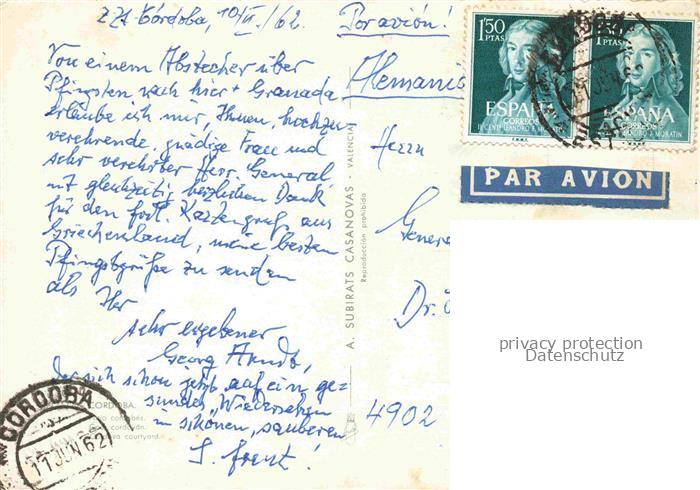 z.Zt. Córdoba, 10/VI./62.
Por avión!
Alemania
Von einem Abstecher über
Pfingsten nach hier + Granada
erlaube ich mir, Ihnen, hochzu-
verehrende, gnädige Frau und
sehr verehrter Herr General,
mit gleichzeitig herzlichem Dank
für den frdl. Kartengruß aus
Griechenland, meine besten
Pfingstgrüße zu senden
als Ihr
sehr ergebener
Georg Arndt,
der sich schon jetzt auf ein ge=
sundes "Wiedersehen
im schönen, sauberen
Herrn
Genera
Dr.
4902
A. SUBIRATS CASANOVAS VALENCIA
Reproducción prohibida
CORDOBA.
courtyard.
CORDOBA
11 JUN 62
1'50
PTAS
ESPAÑA
CORREOS
LEANDRO F. MORATIN
F.N.M.T.
1'50
PTAS
ESPAÑA
CORREOS
LEANDRO F. MORATIN
F.N.M.T.
PAR AVION
privacy protection
Datenschutz